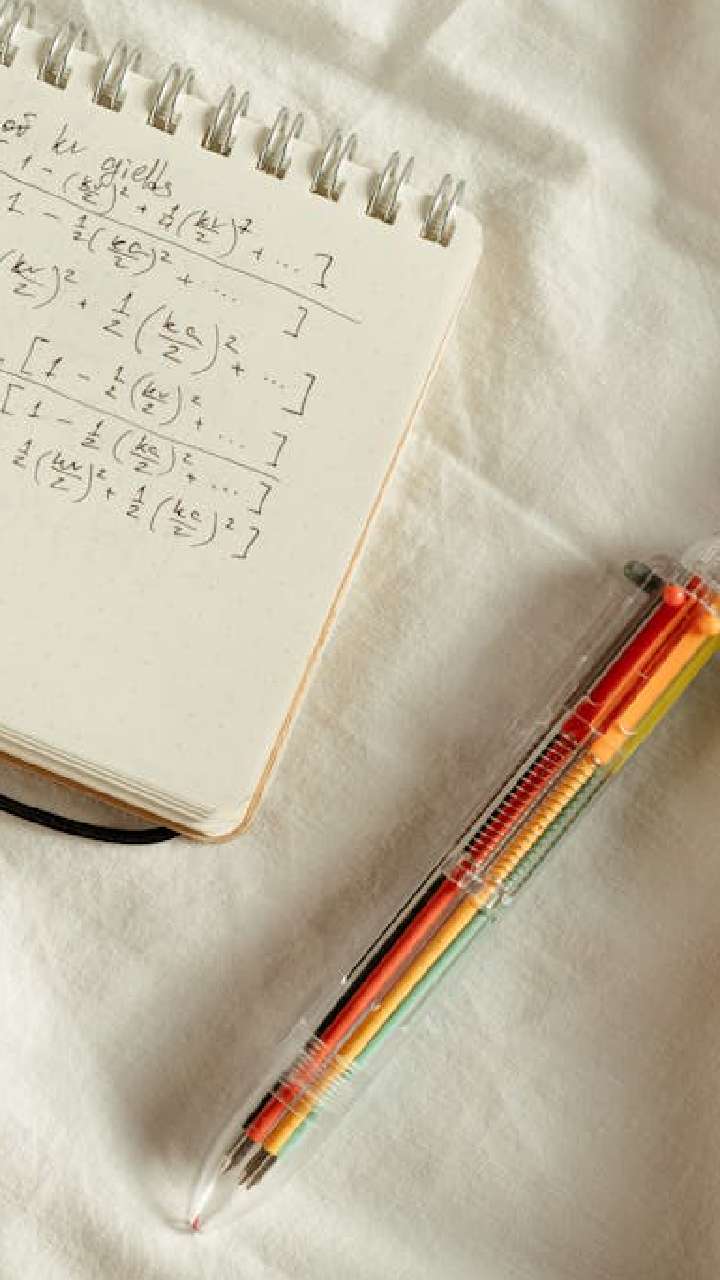 of kr giells
1 - (kr/2)² + 1/4(kr/2)² + ... ]
1 - 1/2(ka/2)² + ... ]
(kr/2)² + 1/2(ka/2)² + ... ]
[1 - 1/2(kr/2)² + ... ]
[1 - 1/2(ka/2)² + ... ]
1/2(kr/2)² + 1/2(ka/2)² ]